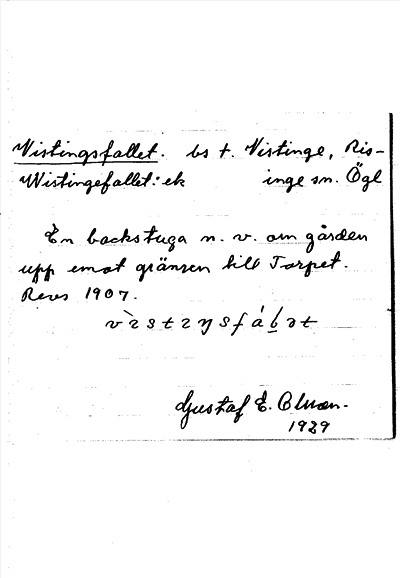 Vistingsfallet. bs t. Vistinge, Ris-
Wistingefallet: ek inge sn. Ögl
En backstuga n. v. om gården
upp emot gränsen till Torpet.
Revs 1907.
Gustaf E.
1929